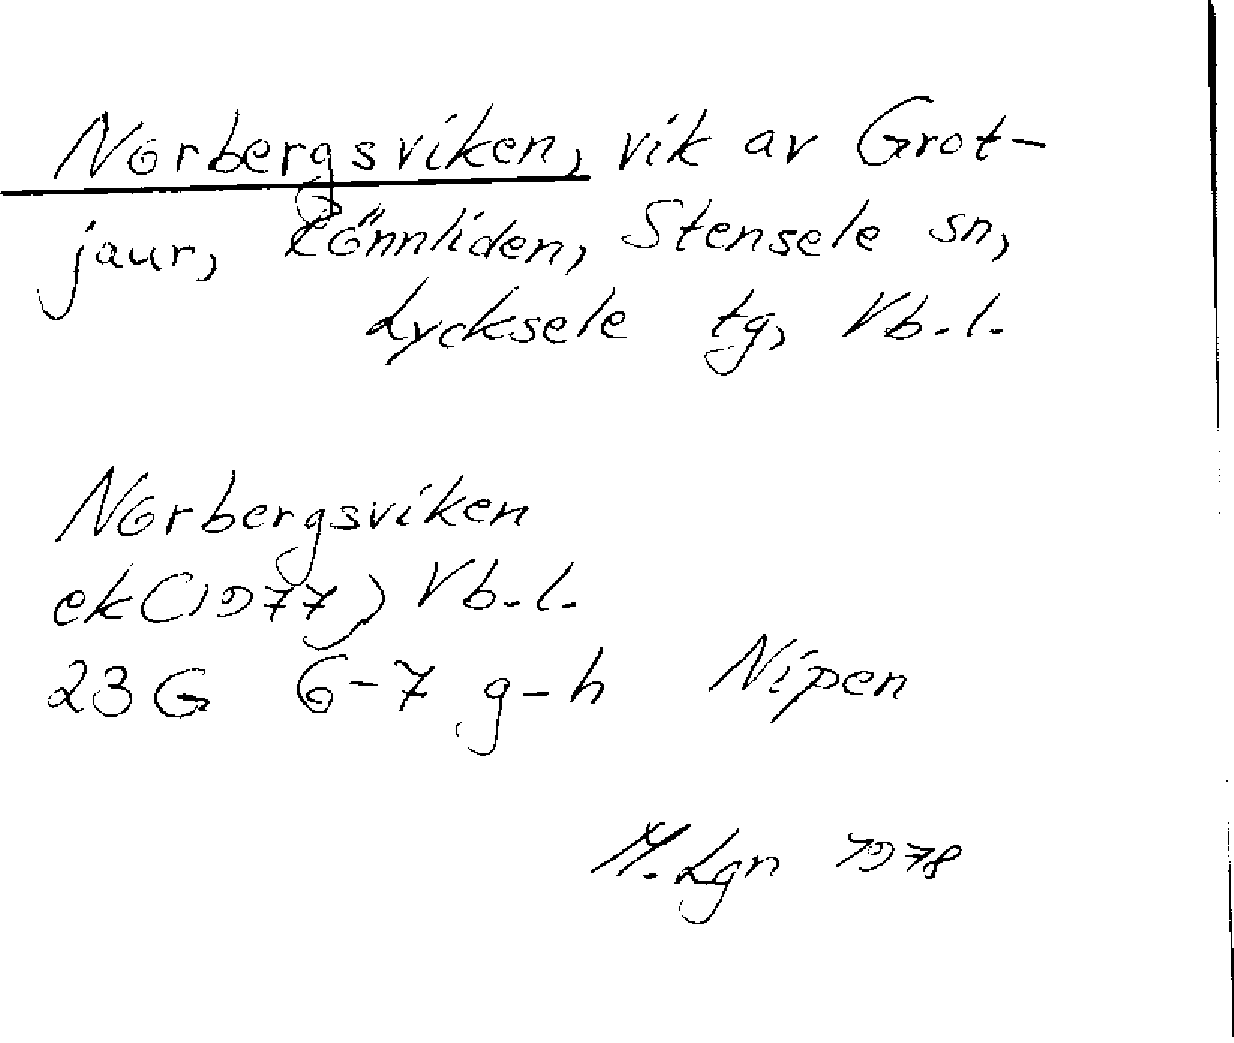 Norbergsviken, vik av Grot-
jaur, Rönnliden, Stensele sn,
Lycksele tg, Vb.l.
Norbergsviken
ek(1977) Vb.l.
23G 6-7 g-h Nipen
M.Lgn 1978